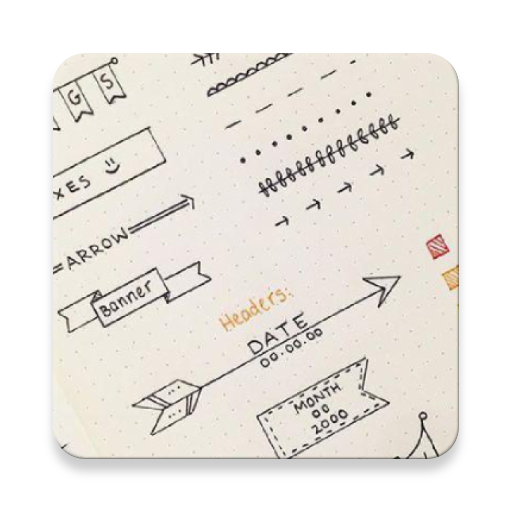 G S
XES
ARROW
Banner
Headers:
DATE
00.00.00
MONTH
00
2000